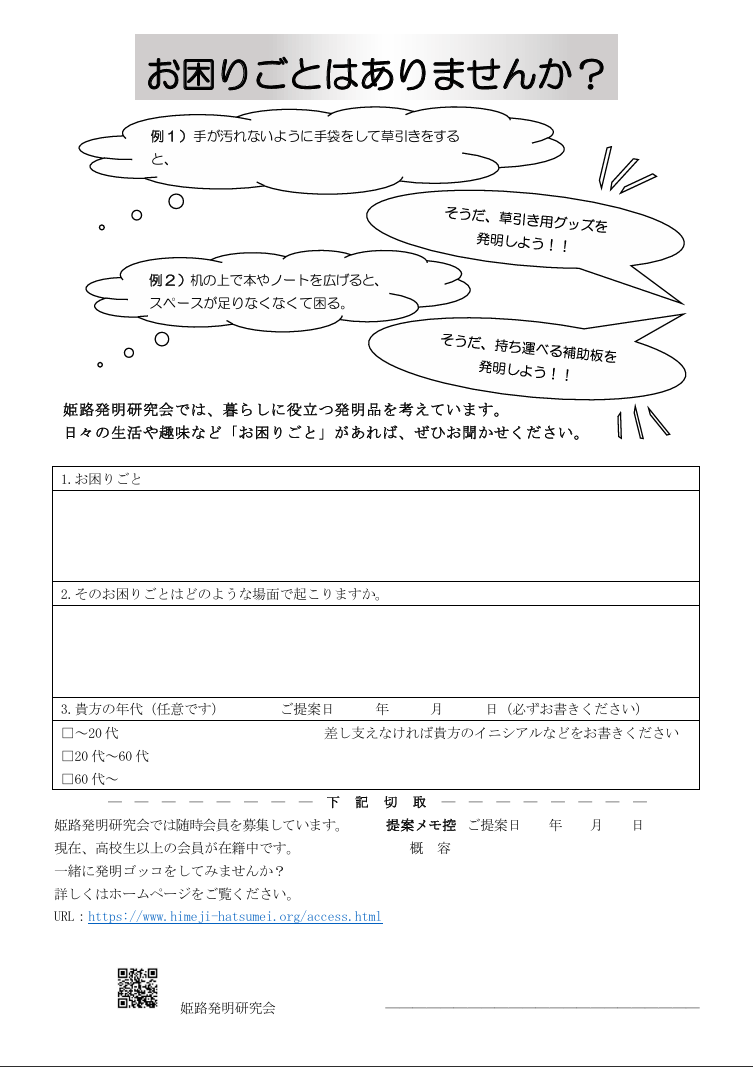 お困りごとはありませんか？
例１）手が汚れないように手袋をして草引きをする
と、
そうだ、草引き用グッズを
発明しよう！！
例２）机の上で本やノートを広げると、
スペースが足りなくなくて困る。
そうだ、持ち運べる補助板を
発明しよう！！
姫路発明研究会では、暮らしに役立つ発明品を考えています。
日々の生活や趣味など「お困りごと」があれば、ぜひお聞かせください。
1.お困りごと
2.そのお困りごとはどのような場面で起こりますか。
3.貴方の年代（任意です）　ご提案日　年　月　日（必ずお書きください）
□～20代　差し支えなければ貴方のイニシアルなどをお書きください
□20代～60代
□60代～
― ― ― ― ― ― ― ― 下 記 切 取 ― ― ― ― ― ― ― ―
姫路発明研究会では随時会員を募集しています。　提案メモ控　ご提案日　年　月　日
現在、高校生以上の会員が在籍中です。　概　容
一緒に発明ゴッコをしてみませんか？
詳しくはホームページをご覧ください。
URL：https://www.himeji-hatsumei.org/access.html
姫路発明研究会